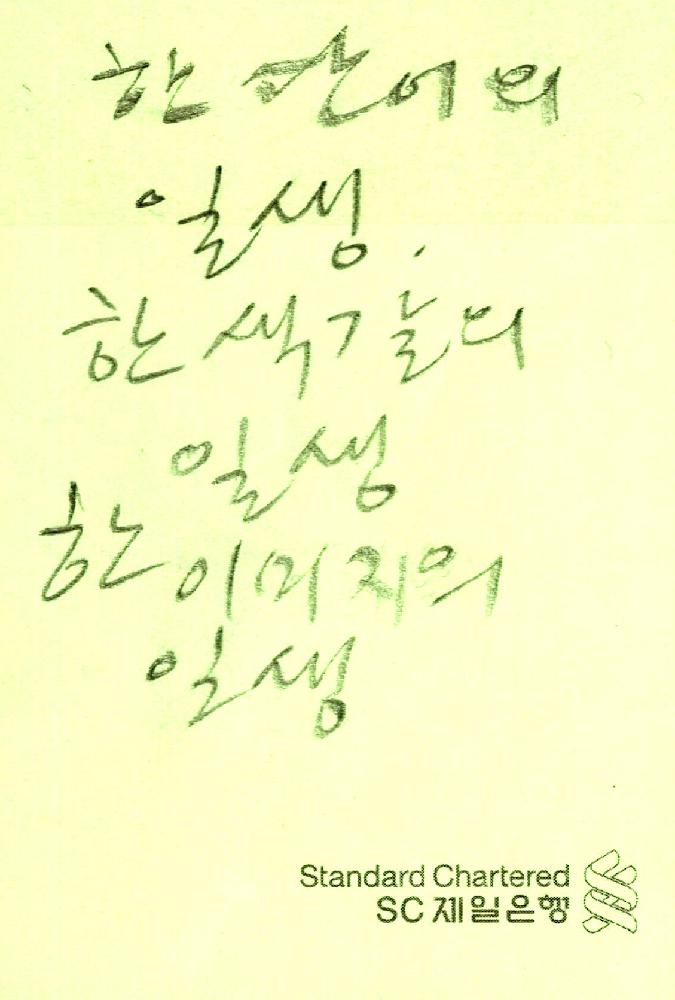 한 단어의
일생.
한 색깔의
일생
한 이미지의
일생
Standard Chartered
SC 제일은행